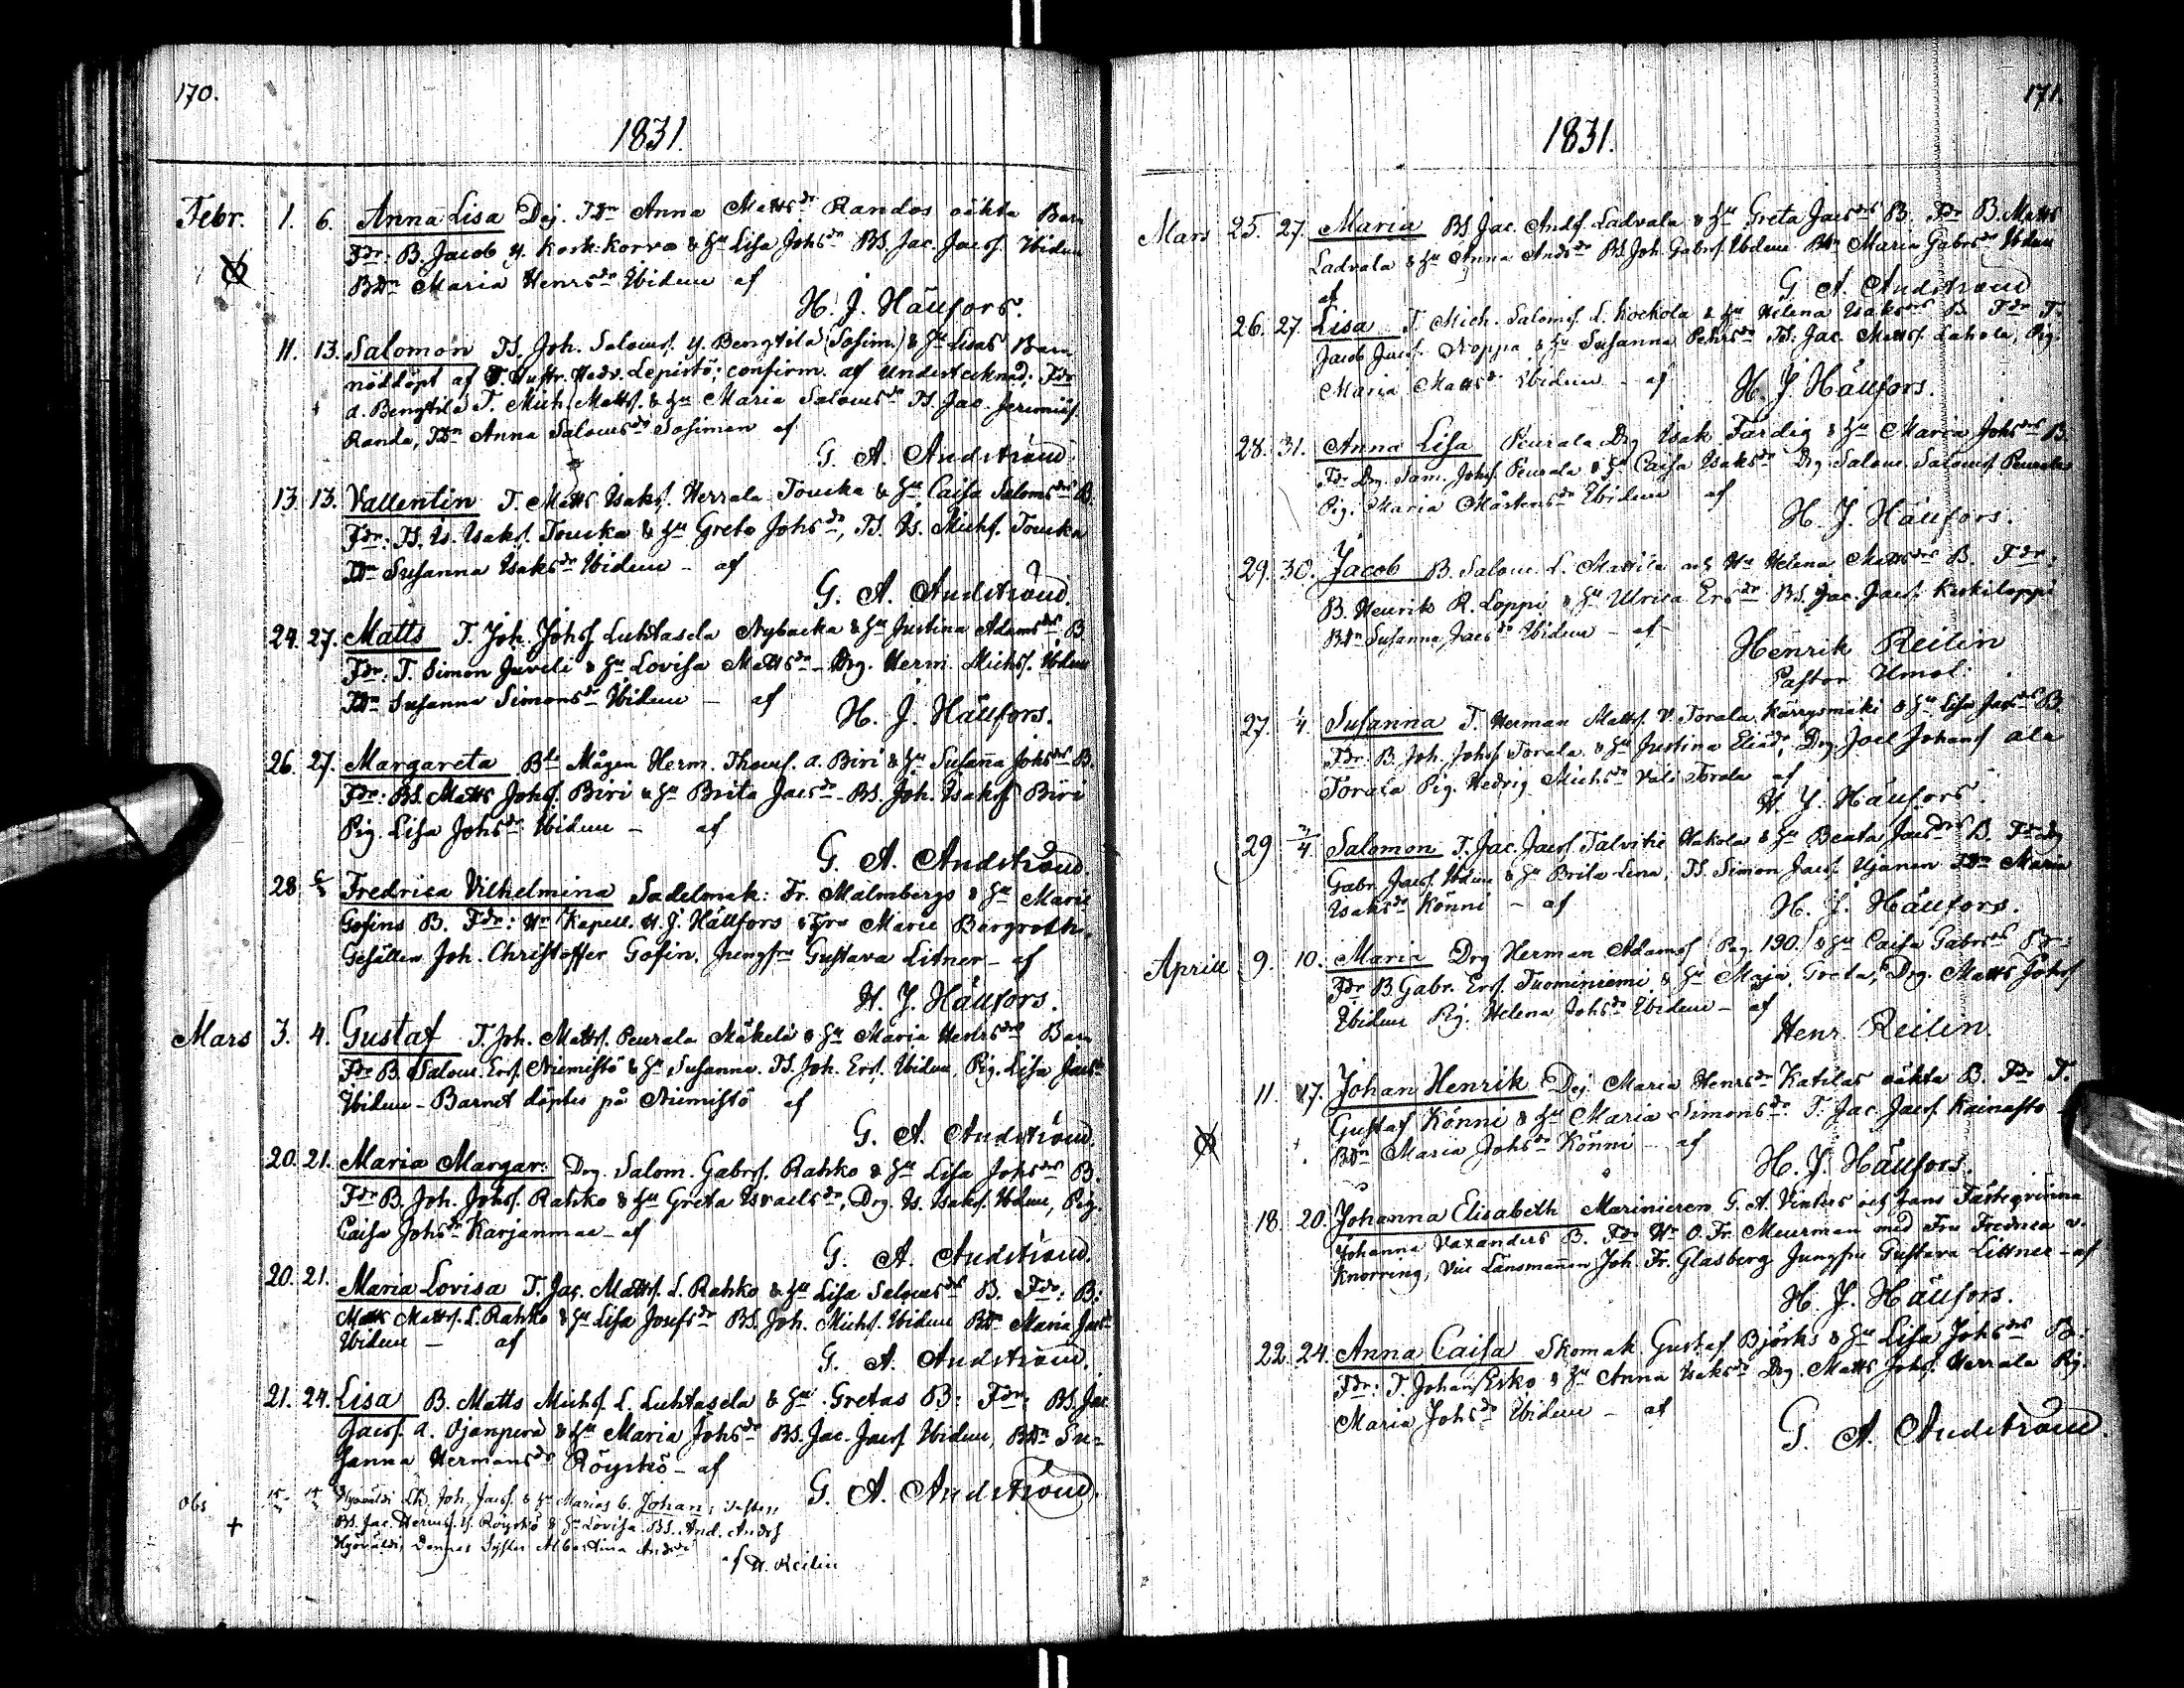 170.
1831.
Febr. 1. 6. Anna Lisa Dej. TDn Anna Mattsdr Randos oäkta Barn
Fdr: B. Jacob y. Kork-Korvo & Hu Lisa Johsdr BS. Jac. Jacs. Ibidem
BDn Maria Henrsdr Ibidem af
H. J. Hällfors.
11. 13. Salomon TS. Joh. Saloms. y. Bengtila (Sosim.) & Hu Lisas Barn
nöddöpt af T. Hustr. Hedv. Lepistö; confirm. af undertecknad; Fdr
a. Bengtilä T. Mich. Matts. & Hu Maria Salomsdr TS. Jac. Jeremiäs.
Randa, TDn Anna Salomsdr Sosiman af
G. A. Andström.
13. 13. Vallentin T. Matts Isaks. Herrala Touska & Hu Caisa Salomsdrs B.
Fdr: TS. Is. Isaks. Touska & Hu Greta Johsdr, TS. Is. Michs. Touska
TDn Susanna Isaksdr Ibidem - af
G. A. Andström.
24. 27. Matts T. Joh. Johs. Luhtasela Nybacka & Hu Justina Adamsdrs B.
Fdr: T. Simon Juveli & Hu Lovisa Mattsdr - Drg. Herm. Michs. Ibdem
TDn Susanna Simonsdr Ibidem - af
H. J. Hällfors.
26. 27. Margareta Bds Mågen Herm. Thoms. a. Biri & Hu Susaña Johsdrs B.
Fdr: BS. Matts Johs. Biri & Hu Brita Jacsdr - BS. Joh. Isaks. Biri
Pig. Lisa Johsdr Ibidem - af
G. A. Andström.
28 6/3 Fredrica Vilhelmina Sadelmak: Fr. Malmbergs & Hu Marie
Gofins B. Fdr: Hr Kapell. H. J. Hällfors & Fru Marie Bergroth.
Gesällen Joh. Christoffer Gofin, Jungfru Gustava Litner - af
H. J. Hällfors.
Mars 3. 4. Gustaf T. Joh. Matts. Peurala Mäkelä & Hu Maria Henrsdrs Barn
Fdr B. Salom. Ers. Niemistö & Hu Susanna. TS. Joh. Ers. Ibidem, Pig. Lisa Jacsdr
Ibidem - Barnet döptes på Niemistö af
G. A. Andström.
20. 21. Maria Margar: Drg. Salom. Gabrs. Rahko & Hu Lisa Johsdrs B.
Fdr B. Joh. Johs. Rahko & Hu Greta Israelsdr, Drg. Is. Isaks. Ibdem, Pig.
Caisa Johsdr Karjanmaa - af
G. A. Andström.
20. 21. Maria Lovisa T. Jac. Matts. L. Rahko & Hu Lisa Salomsdrs B. Fdr: B:
Matts Matts. L. Rahko & Hu Lisa Josefsdr BS. Joh. Michs. Ibidem BDn Maria Jacsdr
Ibidem - af
G. A. Andström.
21. 24. Lisa B. Matts Michs. L. Luhtasela & Hu Gretas B: Fdr: BS. Jac
Jacs. a. Ojanperä & Hu Maria Johsdr BS. Jac. Jacs. Ibidem, BDn Su-
sanna Hermansdr Röyskö - af
G. A. Andström.
obs + Joh. Jacs. & Hu Marias b. Johan;
BS. Jac. Herms. y. Röyskö & Hu Lovisa. BS. And. Ands.
Dennes Syster Albertina Andsdr
af H. Reilin
171.
1831.
Mars 25. 27. Maria BS. Jac. Ands. Ladvala & Hu Greta Jacsdrs B. Fdr B. Matts
Ladvala & Hu Anna Andsdr BS. Joh. Gabrs. Ibdem. BDn Maria Gabrsdr Ibdem
af
G. A. Andström
26. 27. Lisa T. Mich. Saloms. L. Kockola & Hu Helena Isaksdrs B. Fdr T.
Jacob Jacs. Noppa & Hu Susanna Pehrsdr TS. Jac. Matts. Lahola, Pig.
Maria Mattsdr Ibidem - af
H. J. Hällfors.
28. 31. Anna Lisa Peurala Drg Isak Färdig & Hu Maria Johsdrs B.
Fdr Drg. Sam. Johs. Peurala & Hu Caisa Isaksdr Drg. Salom. Saloms. Peurala
Pig. Maria Mårtensdr Ibidem af
H. J. Hällfors.
29. 30. Jacob B. Salom. L. Mattila och Hu Helena Mattsdrs B. Fdr:
B. Henrik R. Loppi & Hu Ulrica Ersdr BS. Jac. Jacs. Keskiloppi
BDn Susanna Jacsdr Ibidem - af
Henrik Reilin
Pastor Ilmol.
27. 1/4 Susanna T. Herman Matts. V. Torala Kärrysmäki & Hu Lisa Jacsdrs B.
Fdr: B. Joh. Johs. Torala & Hu Justina Eliædr, Drg Joel Johans. ala
Torala Pig. Hedvig Michsdr Väli Torala af
H. J. Hällfors.
29 2/4. Salomon T. Jac. Jacs. Talvitie Hakola & Hu Beata Jacsdrs B. Fdr Drg
Gabr. Jacs. Ibdem & Hu Brita Lena, TS. Simon Jacs. Ujanen TDn Maria
Isaksdr Könni - af
H. J. Hällfors.
Aprill 9. 10. Maria Drg Herman Adams. (Pag. 190.) & Hu Caisa Gabrsdrs Br:
Fdr B. Gabr. Ers. Tuominiemi & Hu Maja Greta, Drg. Matts Johs.
Ibidem Pig. Helena Johsdr Ibidem - af
Henr. Reilin.
11. 17. Johan Henrik Dej. Maria Henrsdr Katilas oäkta B. Fdr T.
Gustaf Könni & Hu Maria Simonsdr T. Jac. Jacs. Kainasto -
BDn Maria Johsdr Könni - af
H. J. Hällfors.
18. 20. Johanna Elisabeth Marinieren G. A. Vinters och hans Fästeqvinna
Johanna Vaxanders B. Fdr Hr O. Fr. Meurman med Fru Fredrica v.
Knorring, Vice Länsmannen Joh. Fr. Glasberg Jungfru Gustava Littner - af
H. J. Hällfors.
22. 24. Anna Caisa Skomak. Gustaf Björks & Hu Lisa Johsdrs Br:
Fdr: T. Johan Esko & Hu Anna Isaksdr Drg. Matts Johs. Herrala Pig.
Maria Johsdr Ibidem - af
G. A. Andström.